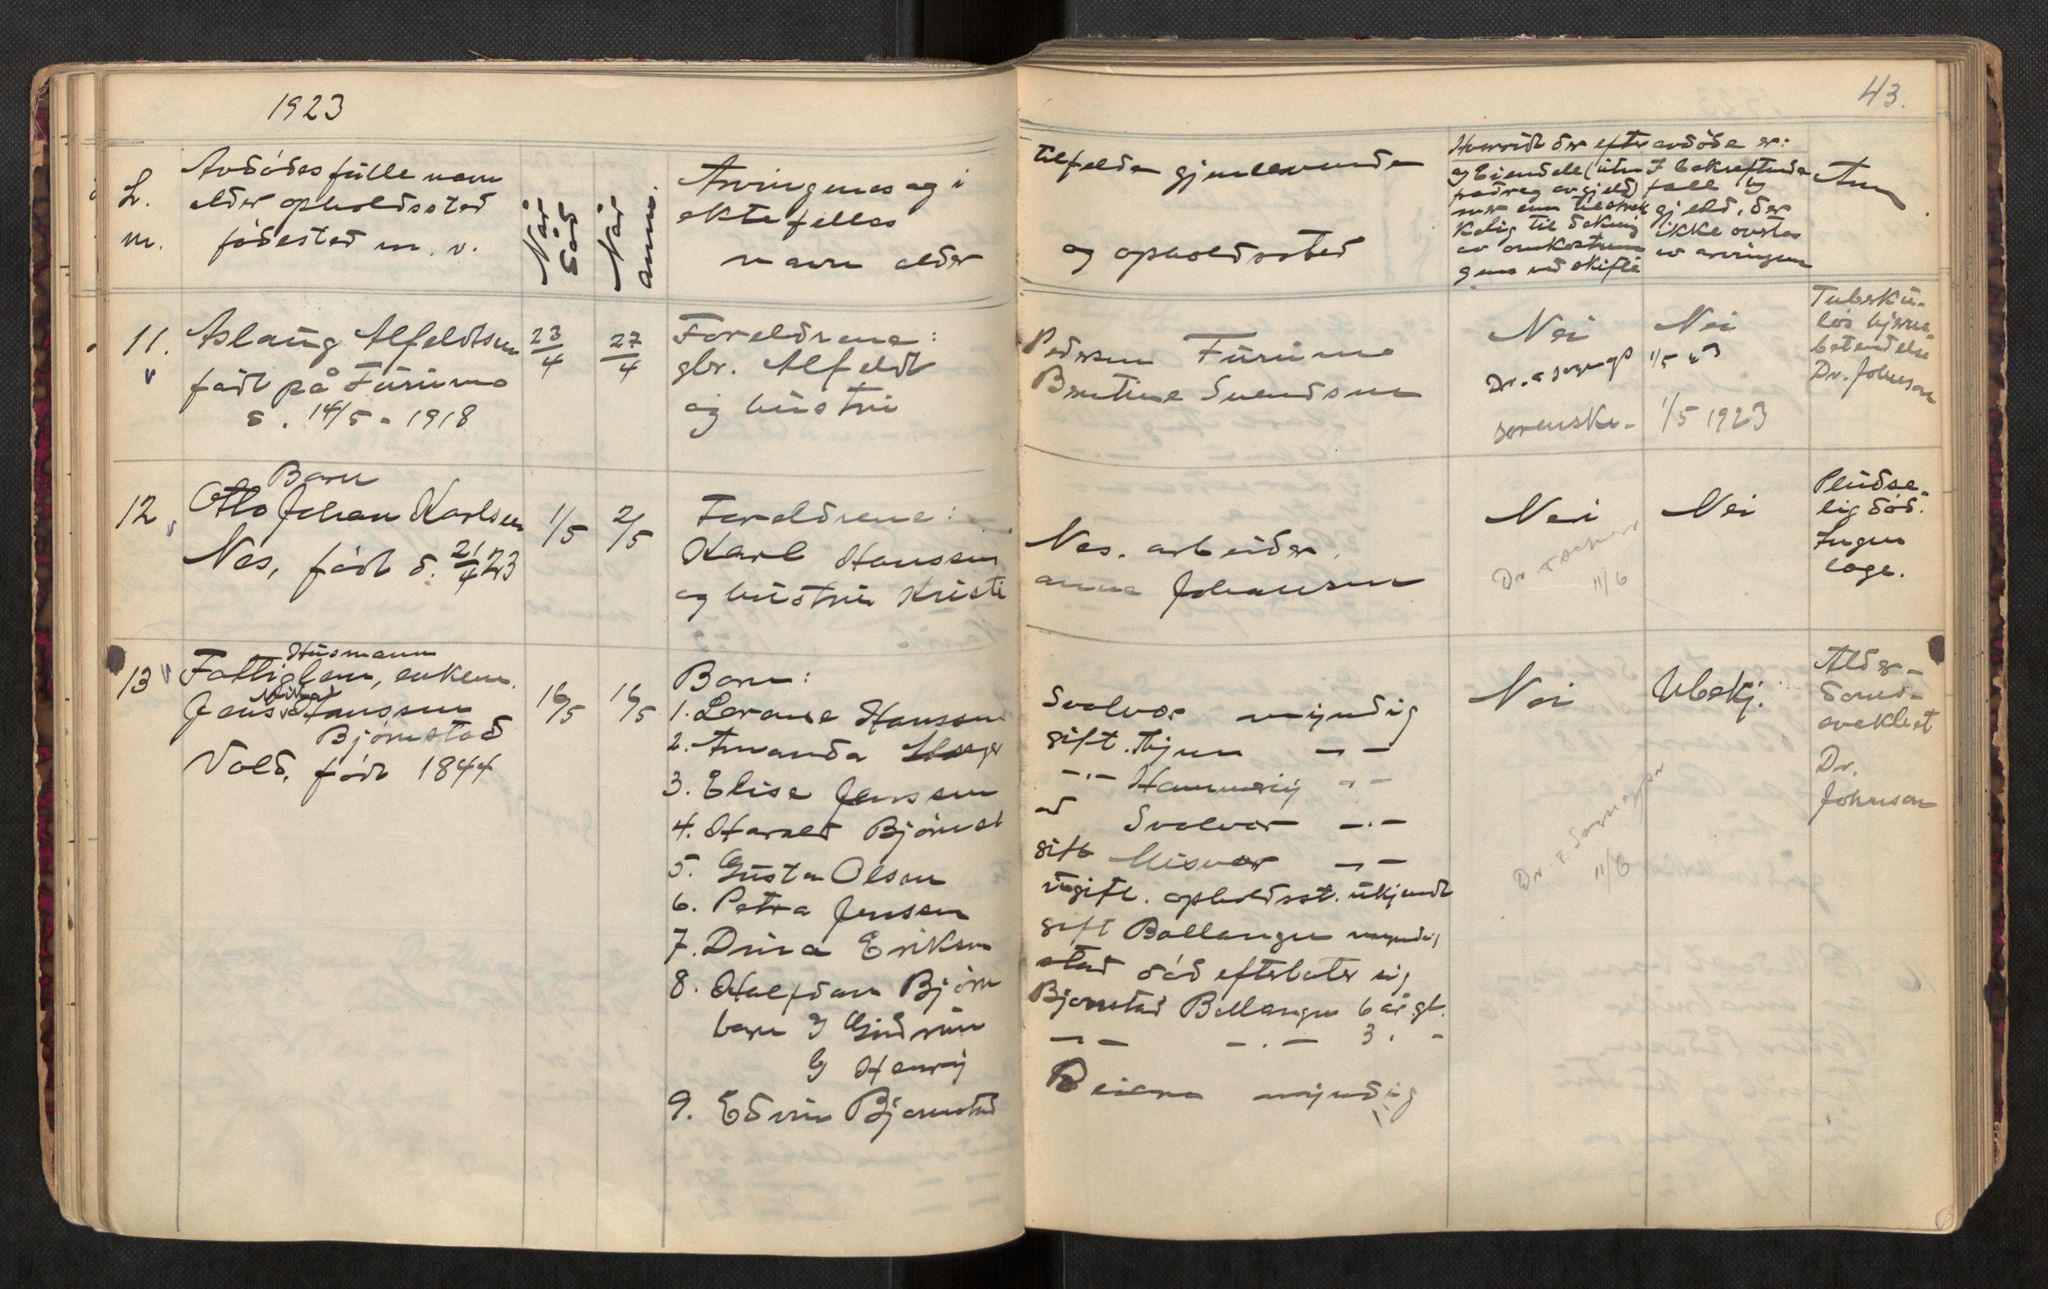 1923
43.
L.
m.
Avdødes fulle navn
alder opholdssted
fødested m. v.
Når
død
Når
anm.
Arvingenes og i
ektefelles
navn alder
tilfelde gjenlevende
og opholdssted
Hvorvidt der efter avdøde er:
og Eiendele (uten
fradrag av gjeld)
mer enn tilstrek
kelig til dekning
av omkostnin
gene ved skifte
I bekreftende
fall og
gjeld, der
ikke overtas
av arvingene
Anm
11.
Aslaug Alfeldtsen
født på Furumo
d. 14/5 - 1918
23/4
27/4
Foreldrene:
gbr. Alfeldt
og hustru
Pedersen Furumo
Berntine Svendsen
Nei
Nei
1/5 23
sorenskr.
1/5 1923
Tuberku-
løs hjerne-
betendelse
Dr. Johnson
Barn
12
Otto Johan Karlsen
Nes, født d. 21/4 23
1/5
2/5
Foreldrene:
Karl Hansen
og hustru Kristi
Nes. arbeider.
anna Johansen
Nei
11/6
Nei
Pludse-
lig død.
Ingen
læge.
Husmann
13
Fattiglem, enkem.
Jens Hanssen
Bjørnstad
Vold, født 1844
16/5
16/5
Barn:
1. Lorense Hanssen
2. Amanda
3. Elise Jenssen
4. Harald Bjørnst
5. Gusta Olsen
6. Petra Jensen
7. Dina Eriksen
8. Halfdan Bjørn
barn Gudrun
Henry
9. Edvin Bjørnstad
Svolvær myndig
gift. Tjeme — " —
— " — Hammerøy " —
ad Svolvær — " —
gift Misvær — " —
ugift. opholdsst. ukjendt
gift Ballangen myndig
stad død efterlater sig
Bjørnstad Ballangen 6 år gl.
— " — — " — 3. -
Beiarn myndig
Nei
11/6
Ubekj.
Alder-
doms-
svekket
Dr.
Johnson